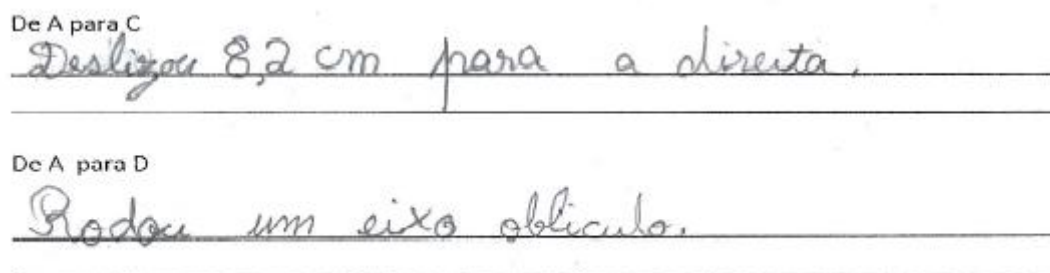 De A para C
Deslizou 8,2 cm para a direita.
De A para D
Rodou um eixo obliculo.